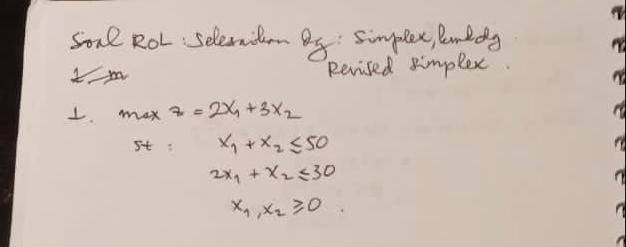 Soal ROL : Selesaikan dg : Simplex,
Revised simplex.
1. max z = 2x₁ + 3x₂
st : x₁ + x₂ ≤ 50
2x₁ + x₂ ≤ 30
x₁, x₂ ≥ 0.